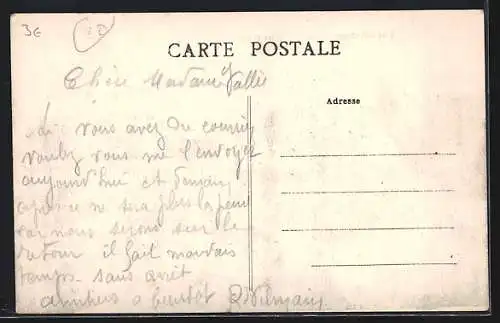 3€
22
CARTE POSTALE
Adresse
Chère Madame Vallie
Si vous avez du courrier
voulez vous me l'envoyez
aujourd'hui et demain
après ce ne sera plus la peine
car nous serons sur le
retour il fait mauvais
temps sans arrêt
amitiers a bientôt